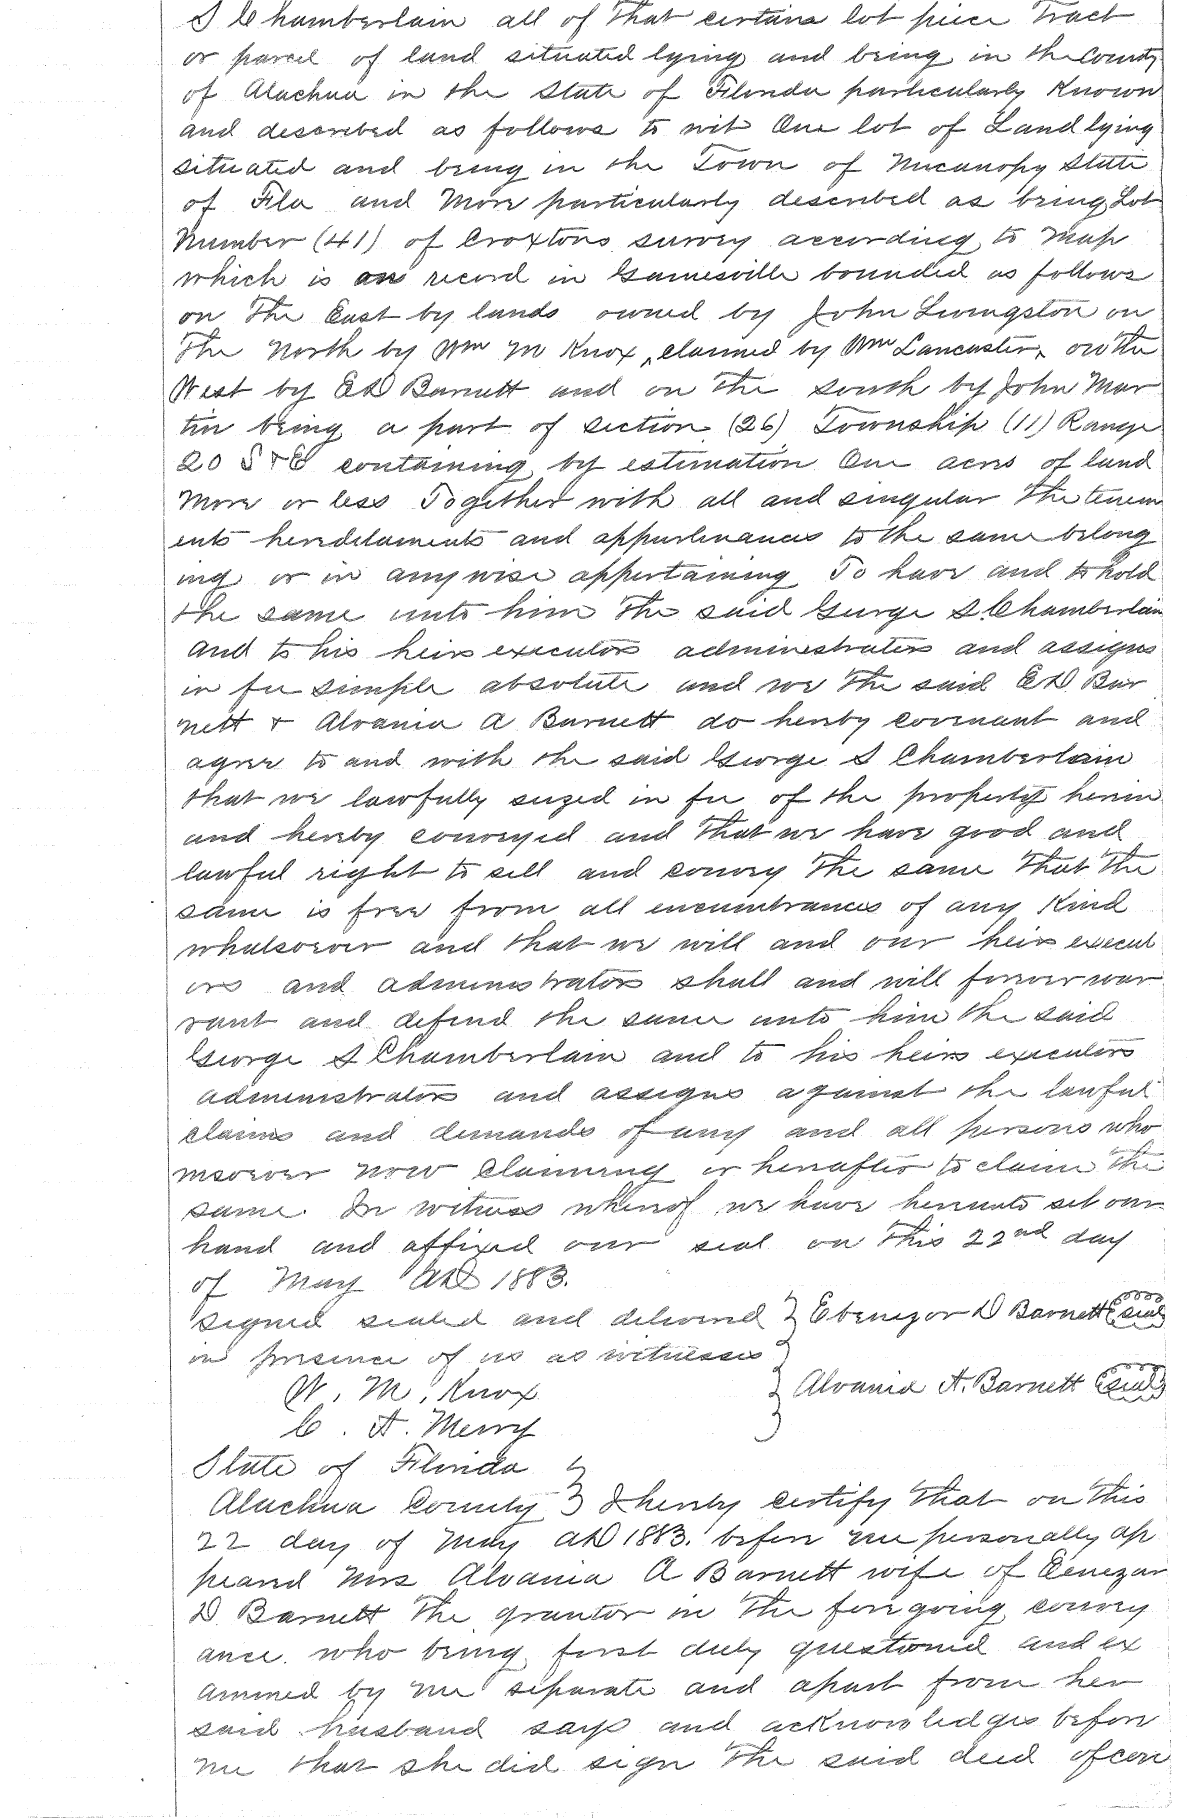 S Chamberlain all of that certain lot piece Tract
or parcel of land situated lying and being in the County
of Alachua in the State of Florida particularly Known
and described as follows to wit One lot of Land lying
situated and being in the Town of Micanopy State
of Fla and More particularly described as being Lot
Number (41) of Croxtons survey according to Map
which is on record in Gainesville bounded as follows
on The East by lands owned by John Livingston on
The North by Wm M Knox, claimed by Wm Lancaster, on The
West by E D Barnett and on The south by John Mar
tin being a part of section (26) Township (11) Range
20 S & E containing by estimation One acre of land
More or less Together with all and singular The tenem
ents hereditaments and appurtenances to the same belong
ing or in anywise appertaining To have and to hold
the same unto him The said George S. Chamberlain
and to his heirs executors administrators and assigns
in fee simple absolute and we The said E D Bar
nett & Alvania A Barnett do hereby covenant and
agree to and with the said George S Chamberlain
that we lawfully seized in fee of the property herein
and hereby conveyed and That we have good and
lawful right to sell and convey The same That The
same is free from all encumbrances of any Kind
whatsoever and that we will and our heirs execut
ors and administrators shall and will forever war
rant and defend the same unto him the said
George S Chamberlain and to his heirs executors
administrators and assigns against the lawful
claims and demands of any and all persons who
msoever now claiming or hereafter to claim The
same. In witness whereof we have hereunto set our
hand and affixed our seal on This 22nd day
of May AD 1883.
Signed sealed and delivered } Ebenezor D Barnett (seal)
in presence of us as witnesses
W. M. Knox } Alvania A. Barnett (seal)
C. A. Merry
State of Florida }
Alachua County } I hereby certify That on This
22 day of May AD 1883. before me personally ap
peared Mrs Alvania A Barnett wife of Eenezar
D Barnett The grantor in The foregoing convey
ance. who being first duly questioned and ex
amined by me separate and apart from her
said husband says and acknowledges before
me that she did sign The said deed of con